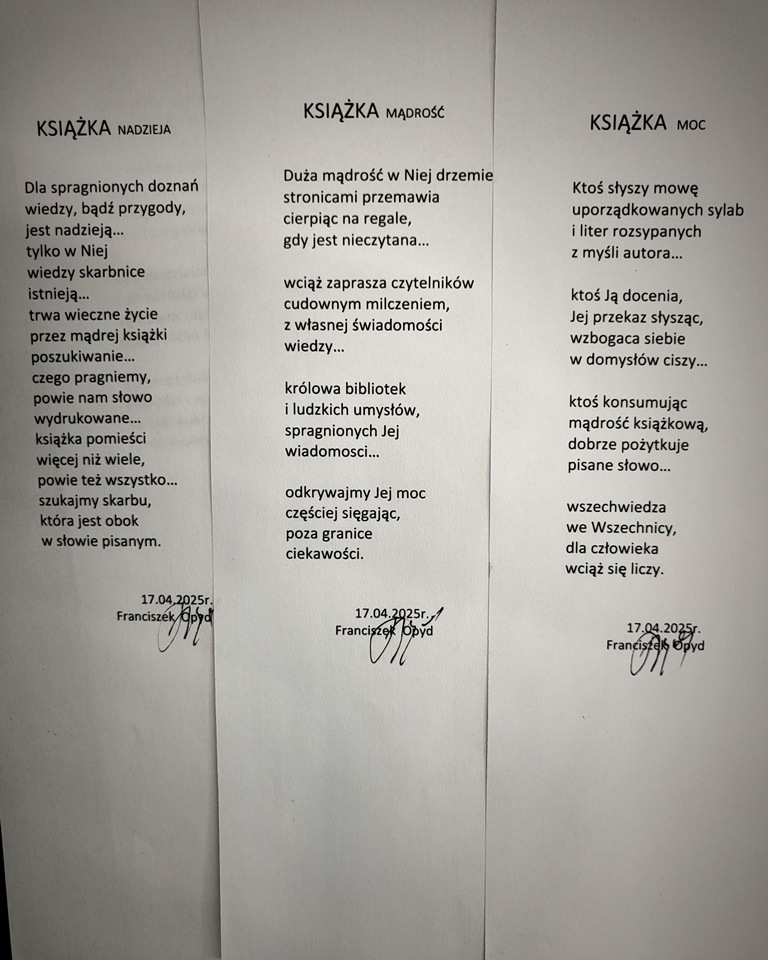 KSIĄŻKA NADZIEJA
Dla spragnionych doznań
wiedzy, bądź przygody,
jest nadzieją...
tylko w Niej
wiedzy skarbnice
istnieją...
trwa wieczne życie
przez mądrej książki
poszukiwanie...
czego pragniemy,
powie nam słowo
wydrukowane...
książka pomieści
więcej niż wiele,
powie też wszystko...
szukajmy skarbu,
która jest obok
w słowie pisanym.
17.04.2025r.
Franciszek Opyd
KSIĄŻKA MĄDROŚĆ
Duża mądrość w Niej drzemie
stronicami przemawia
cierpiąc na regale,
gdy jest nieczytana...
wciąż zaprasza czytelników
cudownym milczeniem,
z własnej świadomości
wiedzy...
królowa bibliotek
i ludzkich umysłów,
spragnionych Jej
wiadomosci...
odkrywajmy Jej moc
częściej sięgając,
poza granice
ciekawości.
17.04.2025r.
Franciszek Opyd
KSIĄŻKA MOC
Ktoś słyszy mowę
uporządkowanych sylab
i liter rozsypanych
z myśli autora...
ktoś Ją docenia,
Jej przekaz słysząc,
wzbogaca siebie
w domysłów ciszy...
ktoś konsumując
mądrość książkową,
dobrze pożytkuje
pisane słowo...
wszechwiedza
we Wszechnicy,
dla człowieka
wciąż się liczy.
17.04.2025r.
Franciszek Opyd